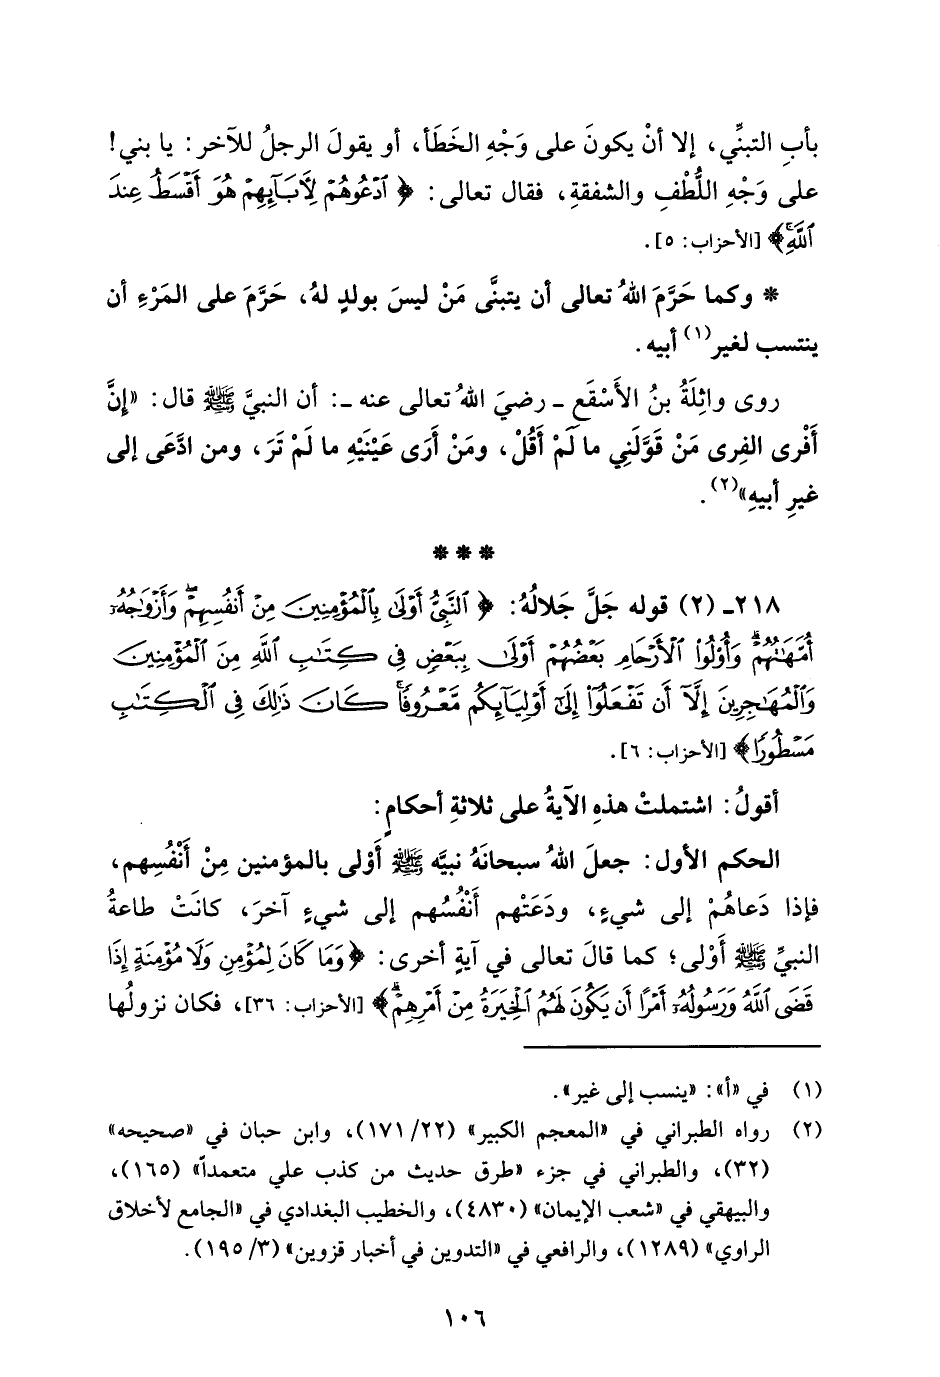 بأبِ التبنِّي، إلا أنْ يكونَ على وَجْهِ الخَطَأ، أو يقولَ الرجلُ للآخر: يا بني!
على وَجْهِ اللُّطْفِ والشفقةِ، فقال تعالى: ﴿ ٱدْعُوهُمْ لِأَبَآئِهِمْ هُوَ أَقْسَطُ عِندَ
ٱللَّهِ﴾ [الأحزاب: ٥].
* وكما حَرَّمَ اللهُ تعالى أن يتبنَّى مَنْ ليسَ بولدٍ لهُ، حَرَّمَ على المَرْءِ أن
ينتسب لغير(١) أبيه.
روى واثِلَةُ بنُ الأَسْقَعِ ـ رضيَ اللهُ تعالى عنه ـ: أن النبيَّ ﷺ قال: «إنَّ
أَفْرى الفِرى مَنْ قَوَّلَنِي ما لَمْ أَقُلْ، ومَنْ أَرَى عَيْنَيْهِ ما لَمْ تَرَ، ومن ادَّعَى إلى
غيرِ أبيهِ»(٢).
* * *
٢١٨ـ (٢) قوله جَلَّ جَلالُهُ: ﴿ ٱلنَّبِيُّ أَوْلَىٰ بِٱلْمُؤْمِنِينَ مِنْ أَنفُسِهِمْ ۖ وَأَزْوَٰجُهُۥٓ
أُمَّهَٰتُهُمْ ۗ وَأُو۟لُوا۟ ٱلْأَرْحَامِ بَعْضُهُمْ أَوْلَىٰ بِبَعْضٍ فِى كِتَٰبِ ٱللَّهِ مِنَ ٱلْمُؤْمِنِينَ
وَٱلْمُهَٰجِرِينَ إِلَّآ أَن تَفْعَلُوٓا۟ إِلَىٰٓ أَوْلِيَآئِكُم مَّعْرُوفًا ۚ كَانَ ذَٰلِكَ فِى ٱلْكِتَٰبِ
مَسْطُورًا﴾ [الأحزاب: ٦].
أقولُ: اشتملتْ هذهِ الآيةُ على ثلاثةِ أحكامٍ:
الحكم الأول: جعلَ اللهُ سبحانَهُ نبيَّه ﷺ أَوْلى بالمؤمنين مِنْ أَنْفُسِهم،
فإذا دَعاهُمْ إلى شيءٍ، ودَعَتْهم أَنْفُسُهم إلى شيءٍ آخرَ، كانَتْ طاعةُ
النبيِّ ﷺ أَوْلى؛ كما قالَ تعالى في آيةٍ أخرى: ﴿وَمَا كَانَ لِمُؤْمِنٍ وَلَا مُؤْمِنَةٍ إِذَا
قَضَى ٱللَّهُ وَرَسُولُهُۥٓ أَمْرًا أَن يَكُونَ لَهُمُ ٱلْخِيَرَةُ مِنْ أَمْرِهِمْ ۗ﴾ [الأحزاب: ٣٦]، فكان نزولُها
(١) في «أ»: «ينسب إلى غير».
(٢) رواه الطبراني في «المعجم الكبير» (٢٢/ ١٧١)، وابن حبان في «صحيحه»
(٣٢)، والطبراني في جزء «طرق حديث من كذب علي متعمداً» (١٦٥)،
والبيهقي في «شعب الإيمان» (٤٨٣٠)، والخطيب البغدادي في «الجامع لأخلاق
الراوي» (١٢٨٩)، والرافعي في «التدوين في أخبار قزوين» (٣/ ١٩٥).
١٠٦